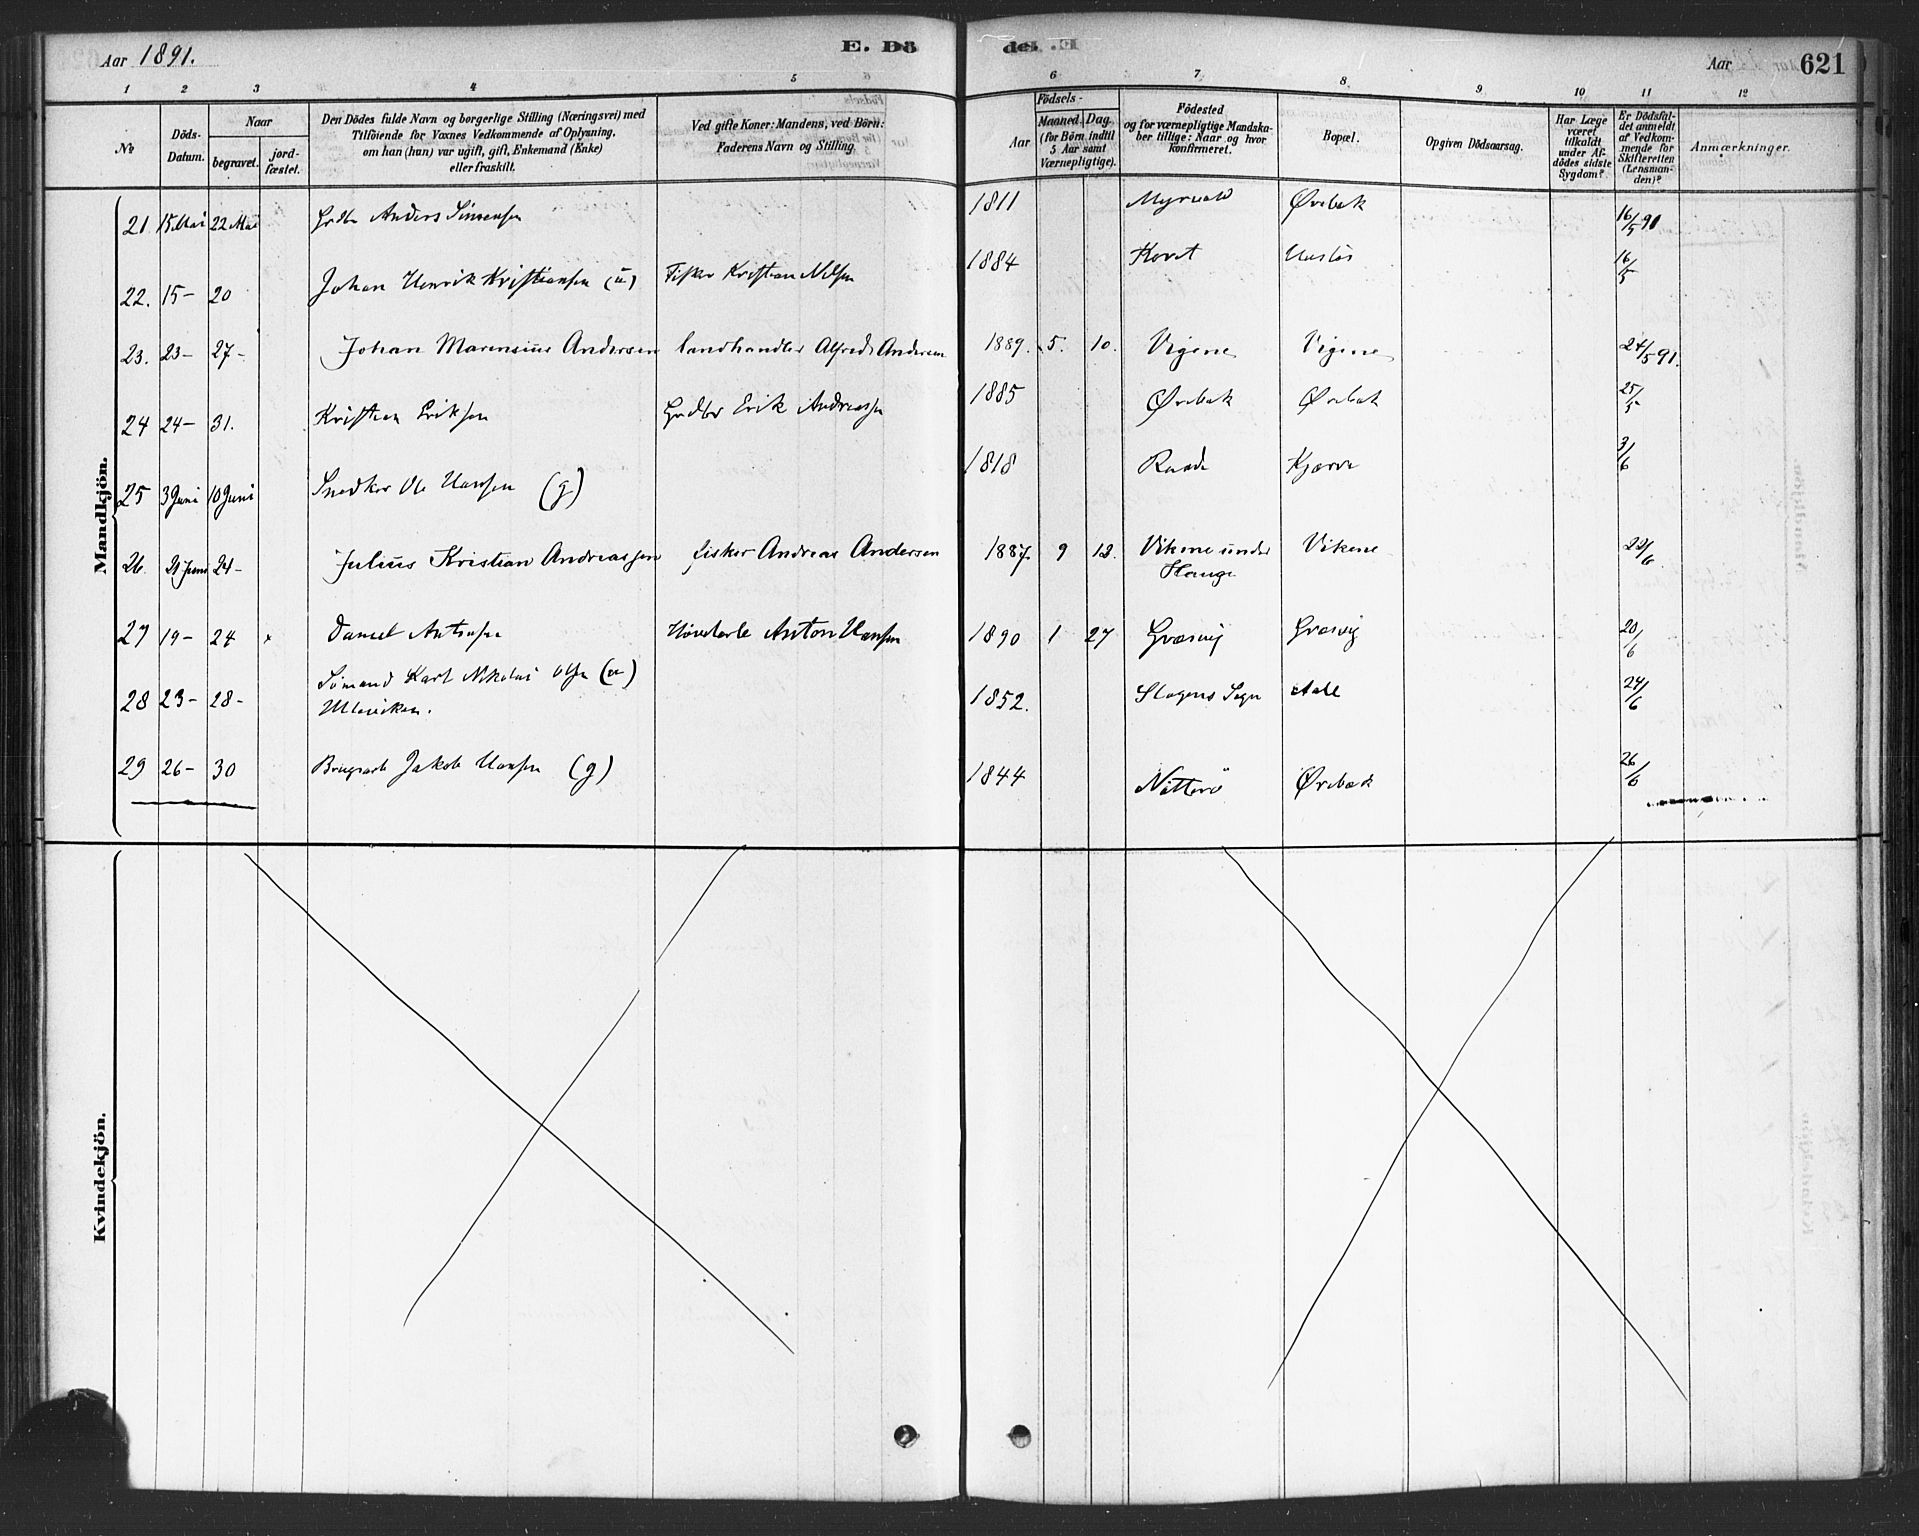 Aar 1891.
E. Dö
Aar 621
1 2 3 4 5 6 7 8. 9 10 11 12
No
Döds-
Datum.
Naar
begravet.
jord-
fæstet.
Den Dödes fulde Navn og borgerlige Stilling (Næringsvei) med
Tilföiende for Voxnes Vedkommende af Oplysning,
om han (hun) var ugift, gift, Enkemand (Enke)
eller fraskilt.
Ved gifte Koner: Mandens, ved Börn:
Faderens Navn og Stilling.
Födsels-
Aar
Maaned. Dag.
(for Börn indtil
5 Aar samt
Værnepligtige).
Födested
og for værnepligtige Mandska-
ber tillige: Naar og hvor
konfirmeret.
Bopæl.
Opgiven Dödsaarsag.
Har Læge
været
tilkaldt
under Af-
dödes sidste
Sygdom?
Er Dödsfal-
det anmeldt
af Vedkom-
mende for
Skifteretten
(Lensman-
den)?
Anmærkninger.
Mandkjön.
21 15 Mai 22 Mai Anders Simensen 1811 Ørebæk 16/5 91
22. 15- 20 Johan Henrik Kristiansen (u) Fisker Kristian Nilsen 1884 16/5
23. 23- 27- Johan Marensius Andersen landhandler Alfred Andersen 1889. 5. 10. Vigene Vigene 24/5 91.
24 24- 31. Kristian Eriksen Erik Andreassen 1885 Ørebæk Ørebæk 25/5
25 3 Juni 10 Juni Snedker Ole Hansen (g) 1818 Raade 3/6
26 21 Juni 24- Julius Kristian Andreassen fisker Andreas Andersen 1887. 9 12. Vikene under Vikene 22/6
Hauge
27 19- 24 x Daniel Antonsen Anton Hansen 1890 1 27 Græsvig Græsvig 20/6
28 23- 28- Sømand Karl Nikolai Olsen (u) 1852. Slagens Sogn 24/6
29 26- 30 Jakob Hansen (g) 1844 Nötterö Ørebæk 26/6
Kvindekjön.